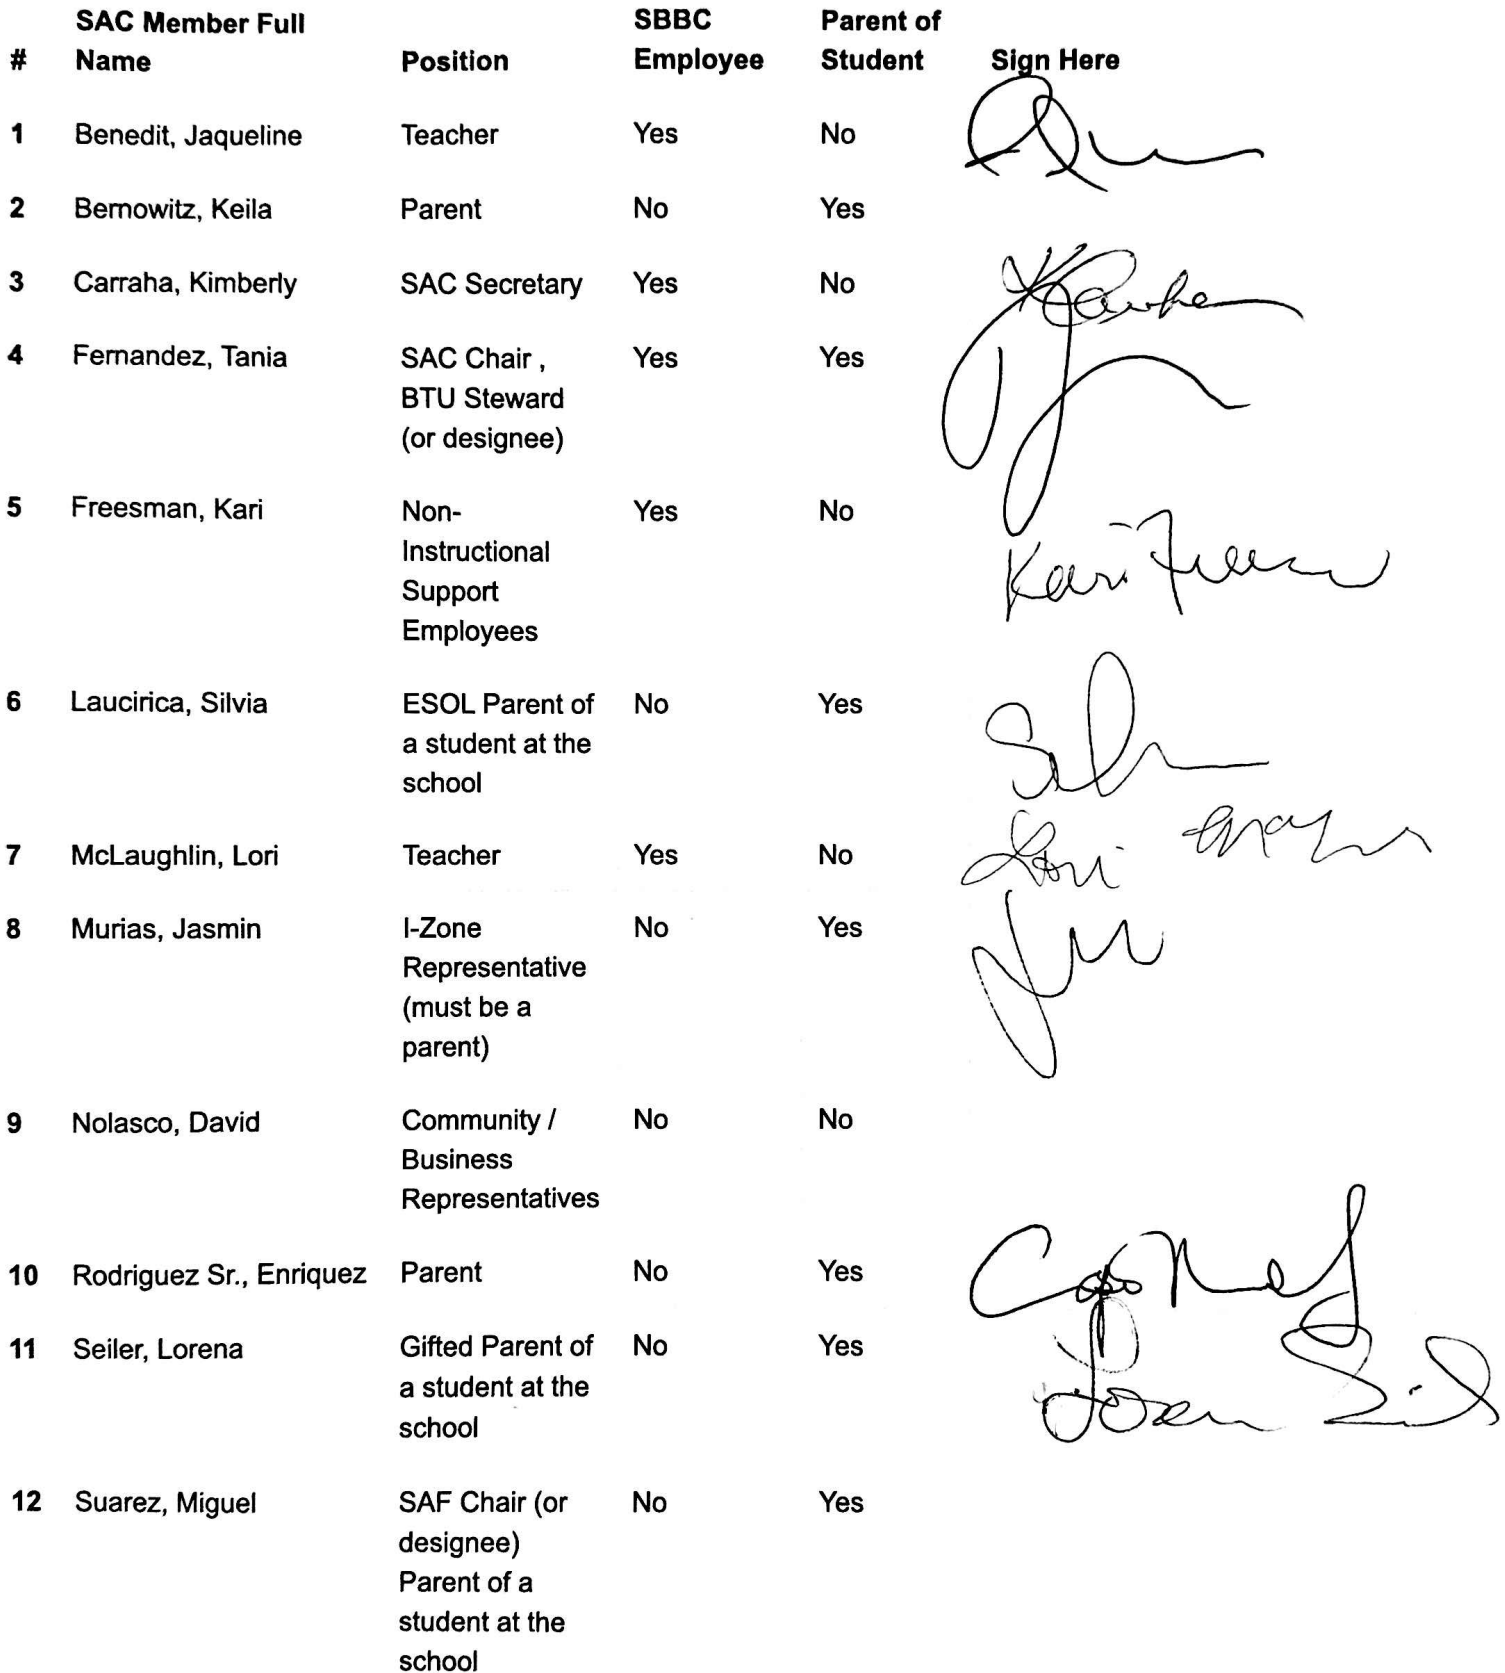 SAC Member Full SBBC Parent of
# Name Position Employee Student Sign Here
1 Benedit, Jaqueline Teacher Yes No
2 Bernowitz, Keila Parent No Yes
3 Carraha, Kimberly SAC Secretary Yes No
4 Fernandez, Tania SAC Chair , Yes Yes
BTU Steward
(or designee)
5 Freesman, Kari Non- Yes No
Instructional
Support
Employees
Kari
6 Laucirica, Silvia ESOL Parent of No Yes
a student at the
school
7 McLaughlin, Lori Teacher Yes No Lori
8 Murias, Jasmin I-Zone No Yes
Representative
(must be a
parent)
9 Nolasco, David Community / No No
Business
Representatives
10 Rodriguez Sr., Enriquez Parent No Yes
11 Seiler, Lorena Gifted Parent of No Yes
a student at the
school
12 Suarez, Miguel SAF Chair (or No Yes
designee)
Parent of a
student at the
school